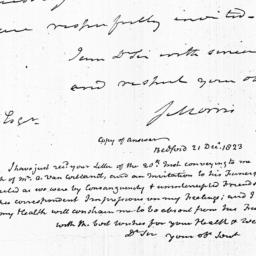 respectfully invited—
I am Dr Sir with sincere
and respect your ob
Esqr.
Morris
Copy of answer
Bedford 21 Decr. 1823
I have just recd. your Letter of the 20th. Inst conveying to me
th of Mr. A. Van Cortlandt, and an Invitation to his Funeral
as we were by Consanguinity & uninterupted Friends
correspondent Impressions on my Feelings; and I
my Health will constrain me to be absent from his Fun
with the best wishes for your Health &
Dr Sir your obt Servt